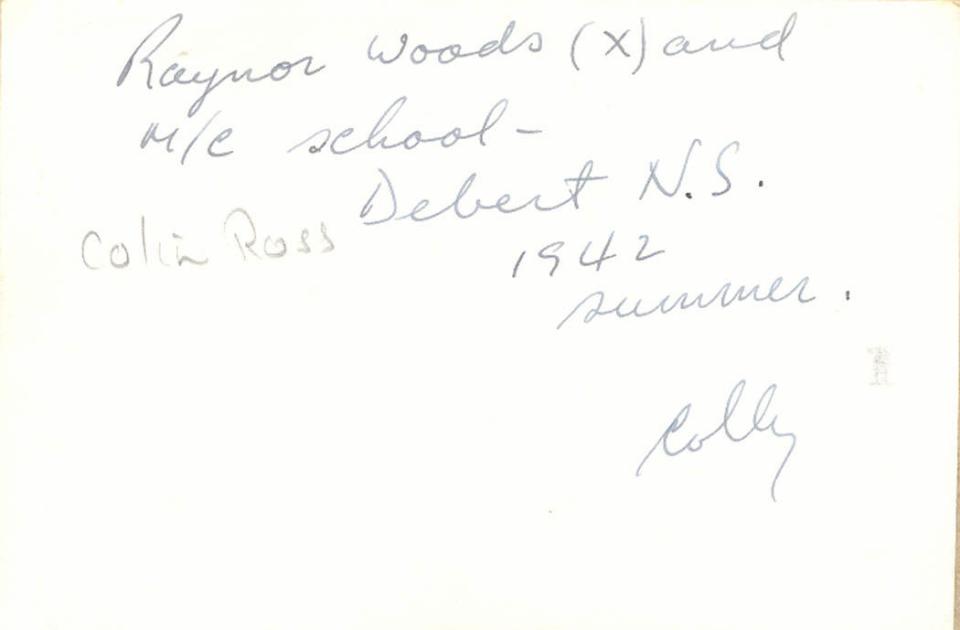 Raynor Woods (X) and
M/C school -
Debert N.S.
Colin Ross
1942
summer.
Colly
1